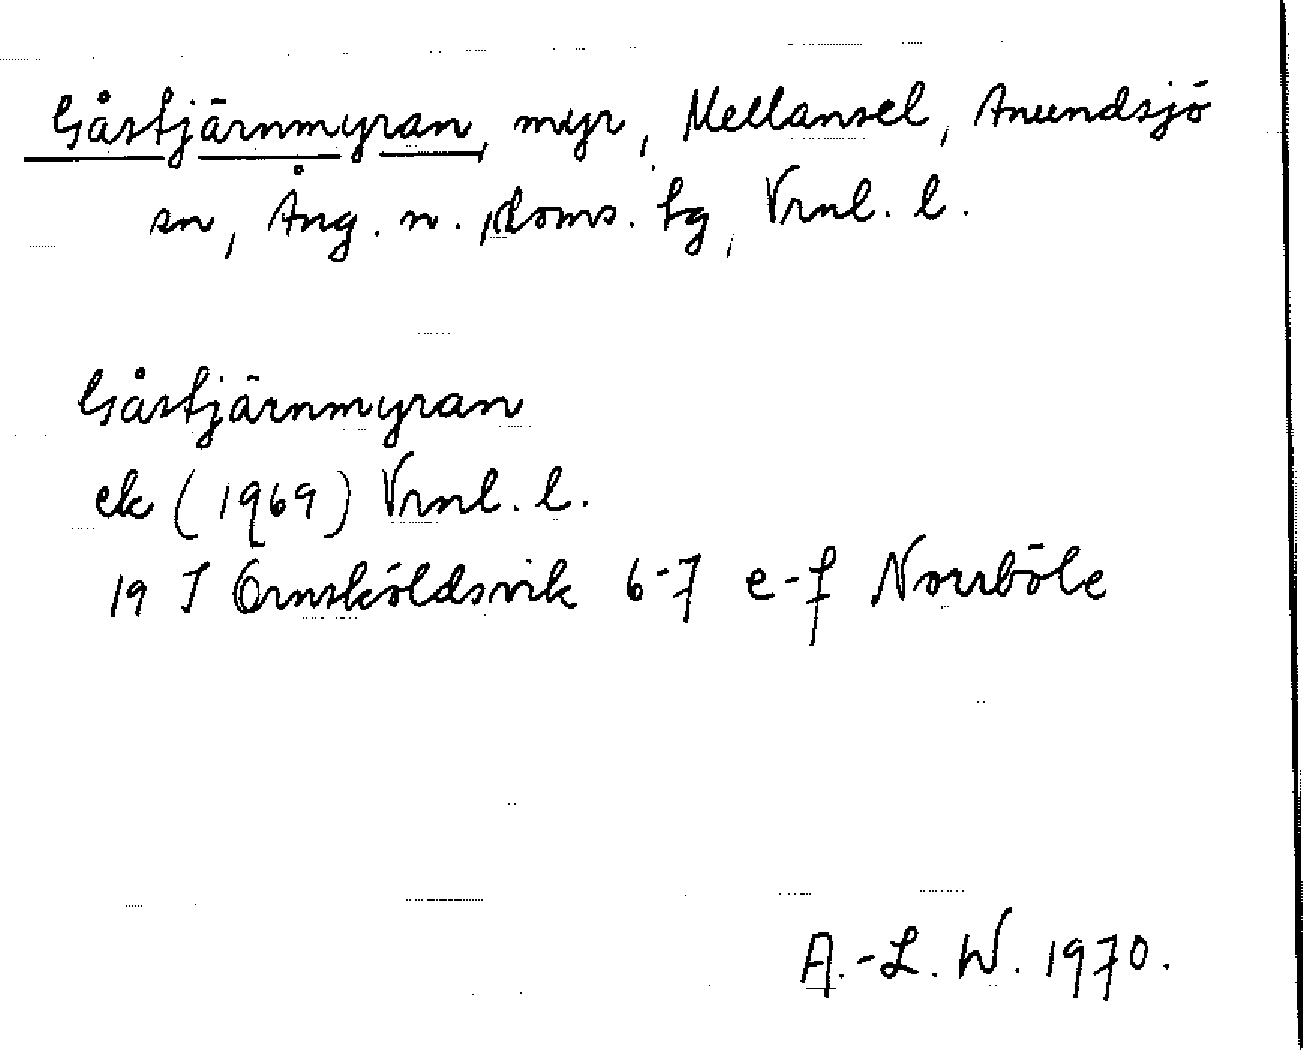 Gåstjärnmyran, myr, Mellansel, Anundsjö
sn, Ång. n. doms. lg, Vrnl. l.
Gåstjärnmyran
ek (1969) Vrnl. l.
19 I Örnsköldsvik 6-7 e-f Norrböle
A.-L. W. 1970.